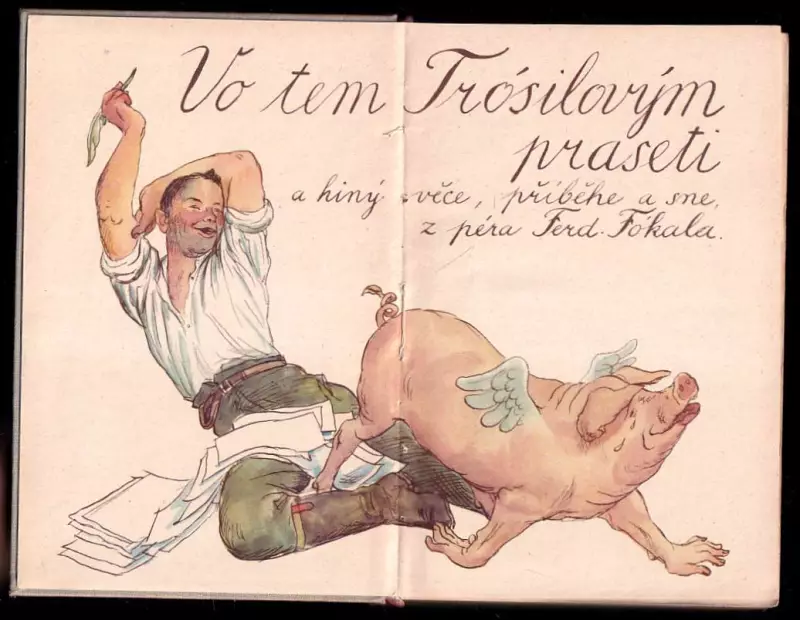 Vo tem Trósilovým
praseti
a hiný věce, příběhe a sne,
z péra Ferd. Fókala.